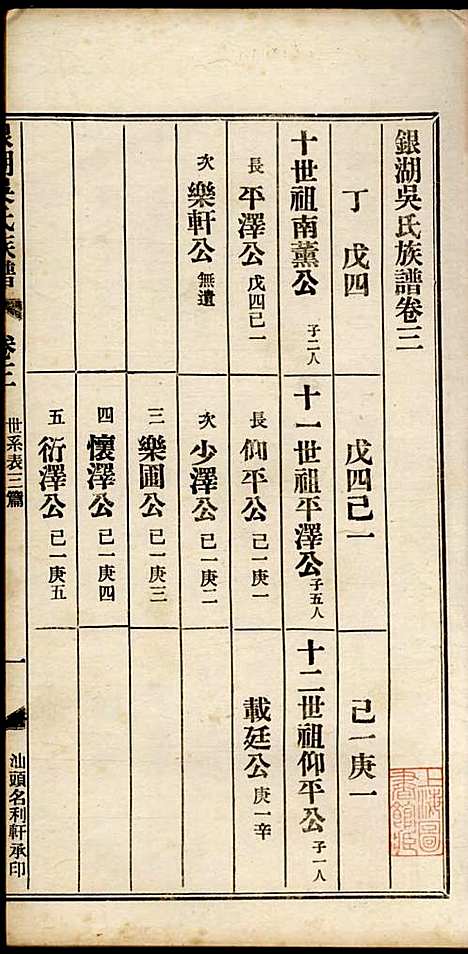 銀湖吳氏族譜卷三
丁 戊四
戊四己一
己一庚一
十世祖南薰公 子二人
十一世祖平澤公 子五人
十二世祖仰平公 子一人
長 平澤公 戊四己一
長 仰平公 己一庚一
載廷公 庚一辛
次 樂軒公 無遺
次 少澤公 己一庚二
三 樂圃公 己一庚三
四 懷澤公 己一庚四
五 衍澤公 己一庚五
銀湖吳氏族譜 卷三 世系表三篇 一 汕頭名利軒承印
上海圖書館藏